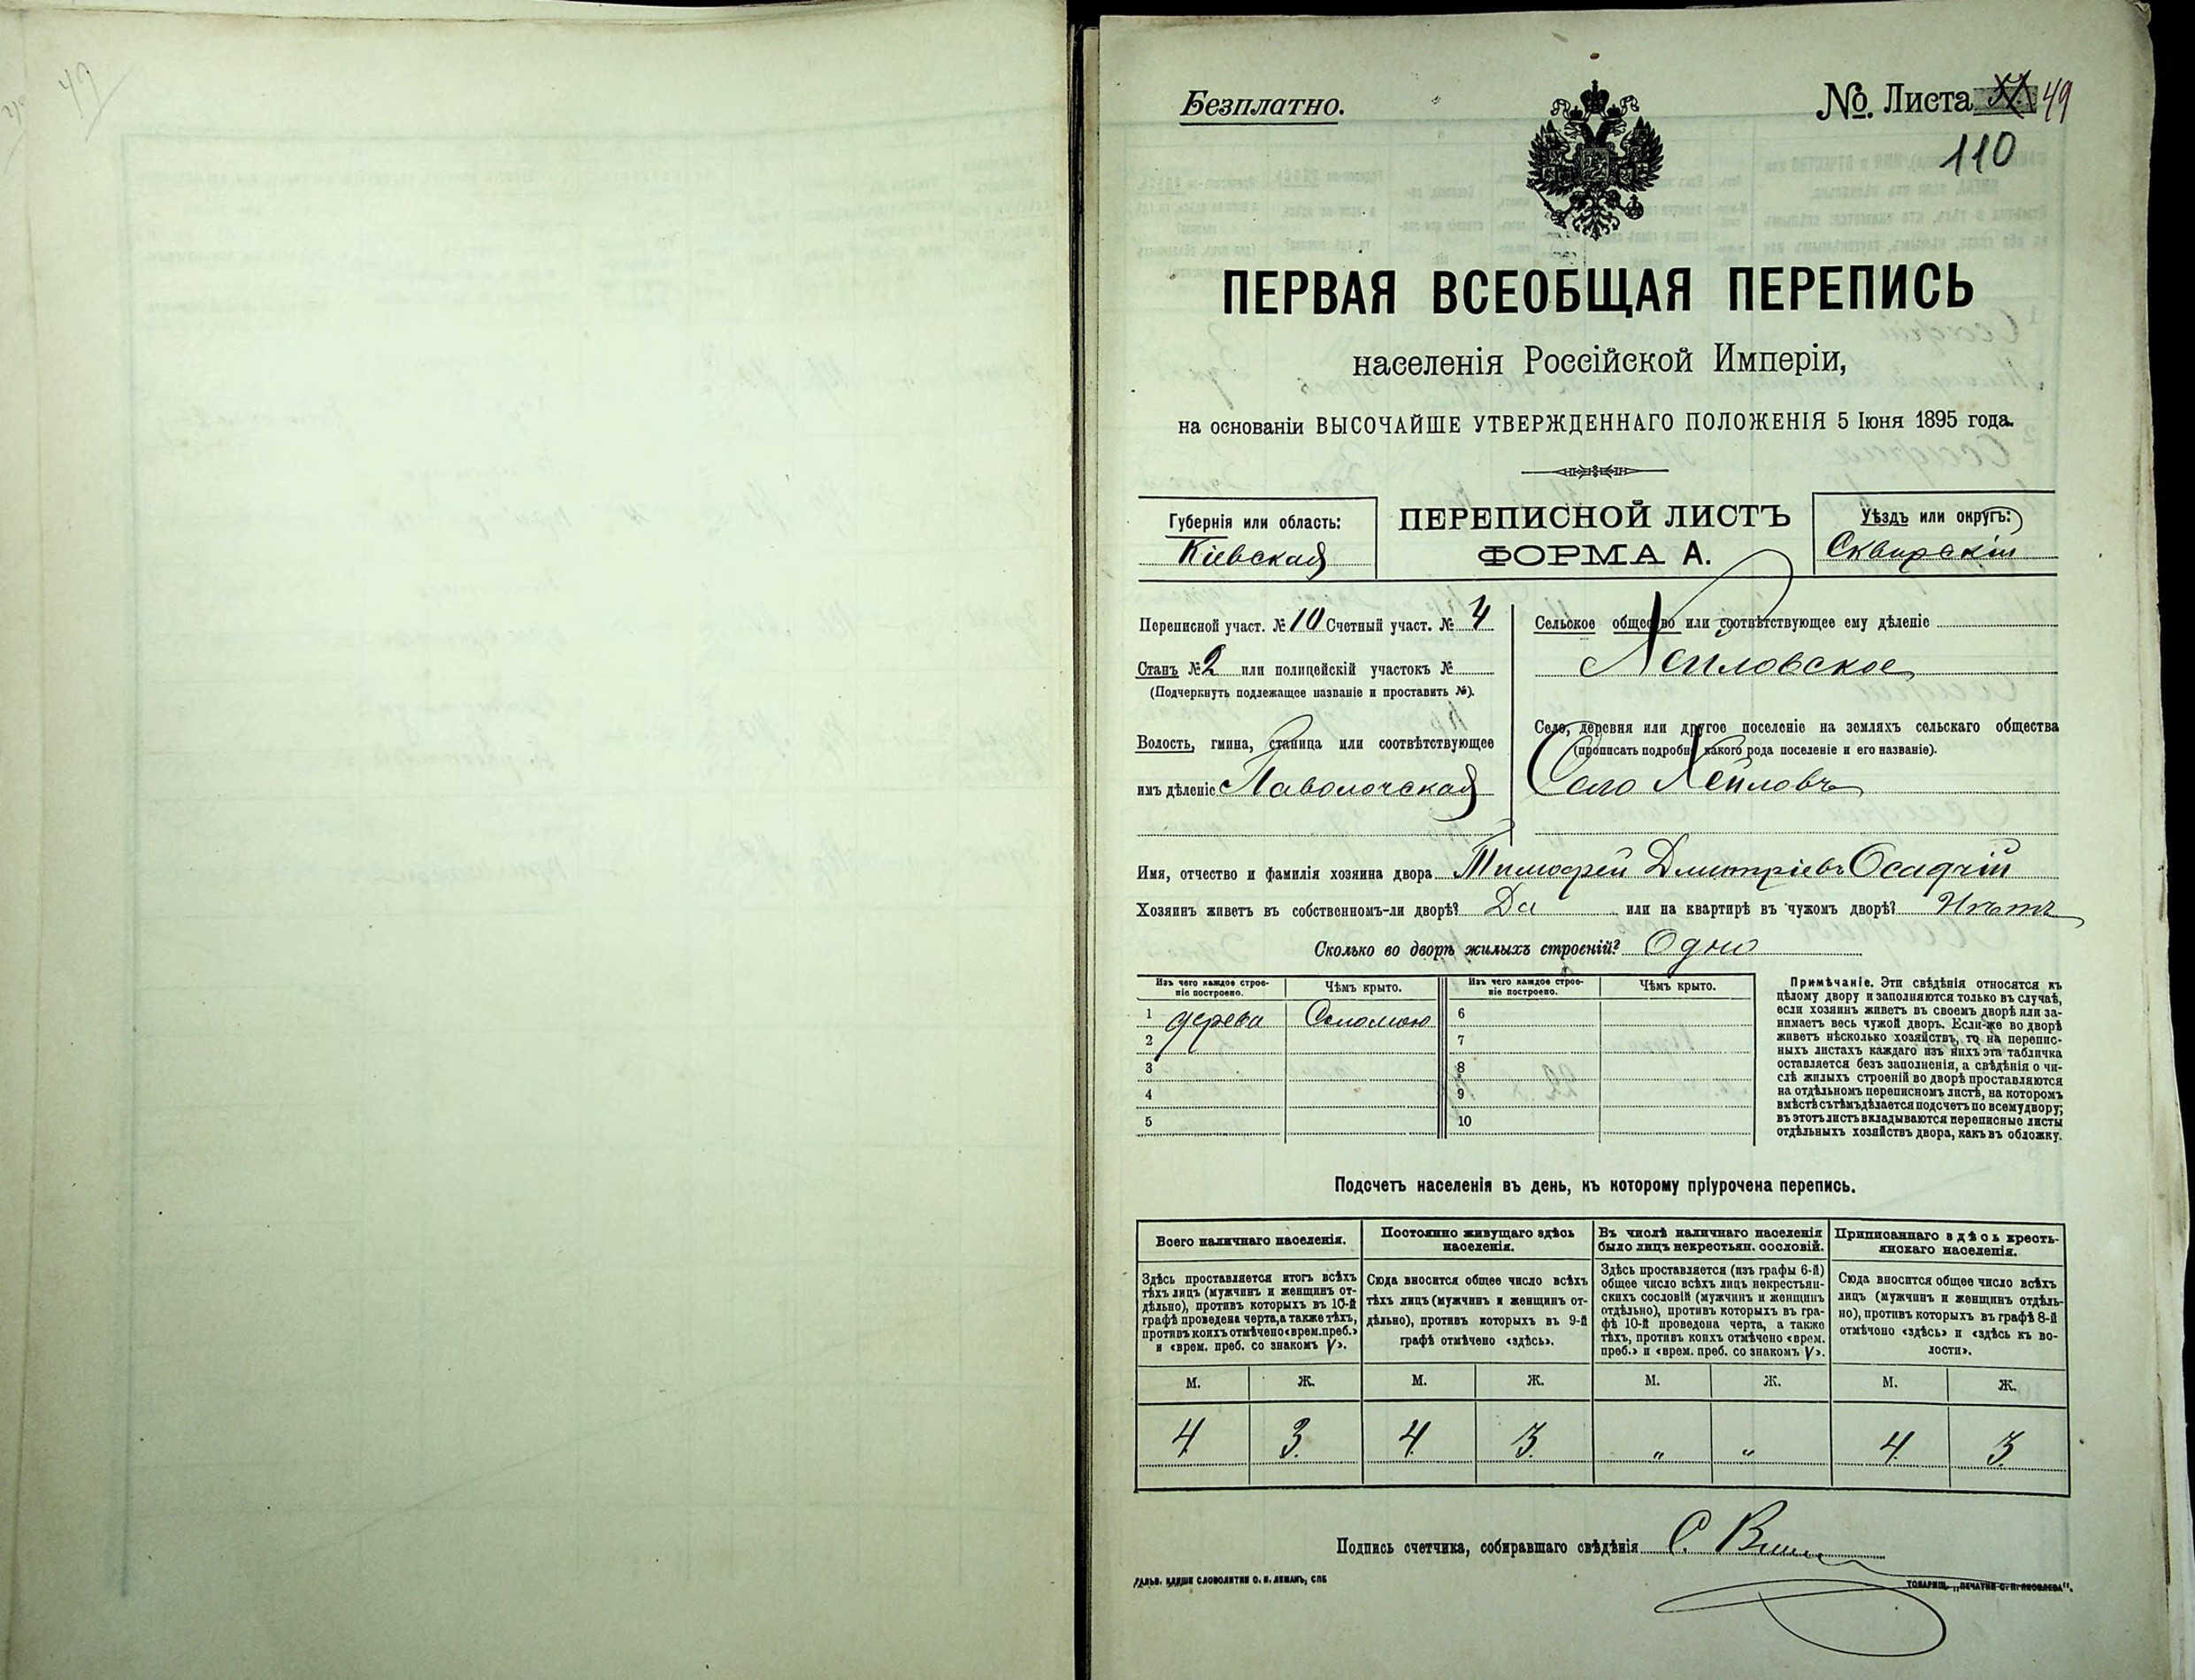 49
Безплатно.
№. Листа 49
110
ПЕРВАЯ ВСЕОБЩАЯ ПЕРЕПИСЬ
населенія Россійской Имперіи,
на основаніи ВЫСОЧАЙШЕ УТВЕРЖДЕННАГО ПОЛОЖЕНІЯ 5 Іюня 1895 года.
Губернія или область:
Кіевская
ПЕРЕПИСНОЙ ЛИСТЪ
ФОРМА А.
Уѣздъ или округъ:
Сквирскій
Переписной участ. № 10 Счетный участ. № 4
Станъ № 2 или полицейскій участокъ №
(Подчеркнуть подлежащее названіе и проставить №).
Волость, гмина, станица или соотвѣтствующее
имъ дѣленіе Паволочская
Сельское общество или соотвѣтствующее ему дѣленіе
Село, деревня или другое поселеніе на земляхъ сельскаго общества
(прописать подробно, какого рода поселеніе и его названіе).
Село
Имя, отчество и фамилія хозяина двора Тимофей Дмитріевъ Осадчій
Хозяинъ живетъ въ собственномъ-ли дворѣ? Да или на квартирѣ въ чужомъ дворѣ? Нѣтъ
Сколько во дворѣ жилыхъ строеній? Одно
Изъ чего каждое строе-
ніе построено.
Чѣмъ крыто.
Изъ чего каждое строе-
ніе построено.
Чѣмъ крыто.
1 дерева Соломою 6
2 7
3 8
4 9
5 10
Примѣчаніе. Эти свѣдѣнія относятся къ
цѣлому двору и заполняются только въ случаѣ,
если хозяинъ живетъ въ своемъ дворѣ или за-
нимаетъ весь чужой дворъ. Если-же во дворѣ
живетъ нѣсколько хозяйствъ, то на перепис-
ныхъ листахъ каждаго изъ нихъ эта табличка
оставляется безъ заполненія, а свѣдѣнія о чи-
слѣ жилыхъ строеній во дворѣ проставляются
на отдѣльномъ переписномъ листѣ, на которомъ
вмѣстѣ съ тѣмъ дѣлается подсчетъ по всему двору;
въ этотъ листъ вкладываются переписные листы
отдѣльныхъ хозяйствъ двора, какъ въ обложку.
Подсчетъ населенія въ день, къ которому пріурочена перепись.
Всего наличнаго населенія.
Здѣсь проставляется итогъ всѣхъ
тѣхъ лицъ (мужчинъ и женщинъ от-
дѣльно), противъ которыхъ въ 10-й
графѣ проведена черта, а также тѣхъ,
противъ коихъ отмѣчено «врем. преб.»
и «врем. преб. со знакомъ V».
Постоянно живущаго здѣсь
населенія.
Сюда вносится общее число всѣхъ
тѣхъ лицъ (мужчинъ и женщинъ от-
дѣльно), противъ которыхъ въ 9-й
графѣ отмѣчено «здѣсь».
Въ числѣ наличнаго населенія
было лицъ некрестьян. сословій.
Здѣсь проставляется (изъ графы 6-й)
общее число всѣхъ лицъ некрестьян-
скихъ сословій (мужчинъ и женщинъ
отдѣльно), противъ которыхъ въ гра-
фѣ 10-й проведена черта, а также
тѣхъ, противъ коихъ отмѣчено «врем.
преб.» и «врем. преб. со знакомъ V».
Приписаннаго здѣсь кресть-
янскаго населенія.
Сюда вносится общее число всѣхъ
лицъ (мужчинъ и женщинъ отдѣль-
но), противъ которыхъ въ графѣ 8-й
отмѣчено «здѣсь» и «здѣсь къ во-
лости».
М. Ж. М. Ж. М. Ж. М. Ж.
4 3. 4 3. „ „ 4 3
Подпись счетчика, собиравшаго свѣдѣнія С.
ГАЛЬВ. КЛИШЕ СЛОВОЛИТНИ О. И. ЛЕМАНЪ, СПБ
ТОВАРИЩ. „ПЕЧАТНЯ С. П. ЯКОВЛЕВА".